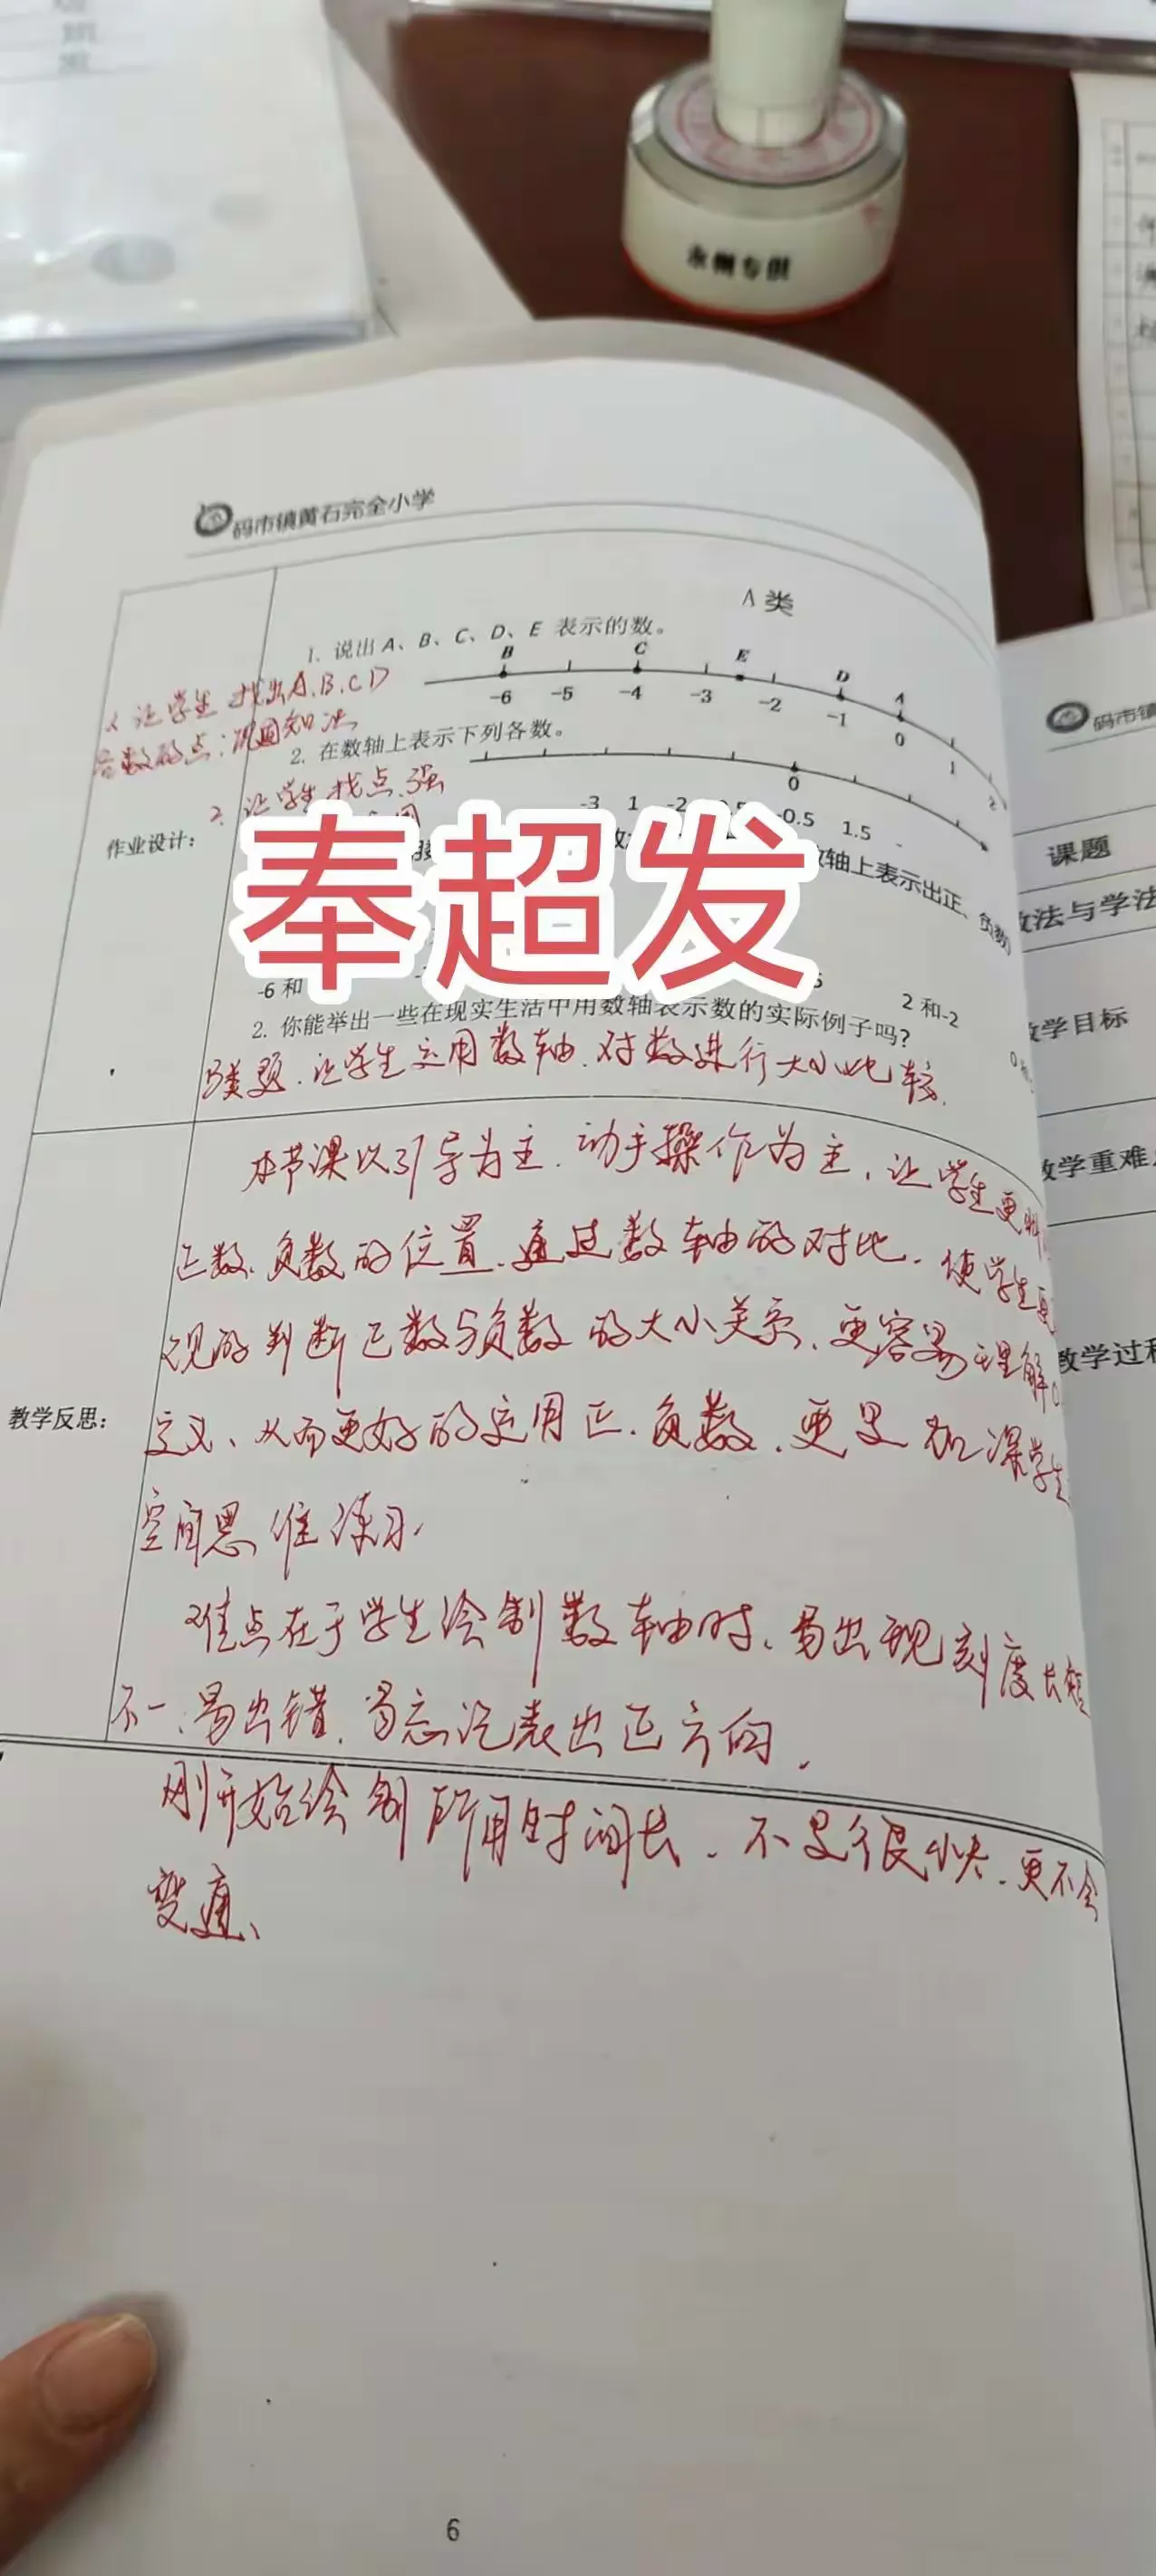 永州专供
码市镇黄石完全小学
A 类
1. 说出 A、B、C、D、E 表示的数。
B C E D A
-6 -5 -4 -3 -2 -1 0 1 2
1. 让学生找出A.B.CD
各数的点;巩固知识
2. 在数轴上表示下列各数。
0
2. 让学生找点.强
-3 1 -2 -0.5 1.5
作业设计:
数轴上表示出正、负数
奉超发
-6 和
2 和-2
2. 你能举出一些在现实生活中用数轴表示数的实际例子吗?
B类题.让学生运用数轴.对数进行大小比较.
本节课以引导为主.动手操作为主,让学生更
正数.负数的位置.通过数轴的对比.使学生更
观的判断正数与负数的大小关系.更容易理解
教学反思:
定义、从而更好的运用正.负数.更是加深学生
空间思维练习.
难点在于学生绘制数轴时.易出现刻度长短
不一.易出错.易忘记表出正方向.
刚开始绘制所用时间长.不是很快.更不会
变通、
6
码市镇
课题
教法与学法
教学目标
教学重难
教学过程